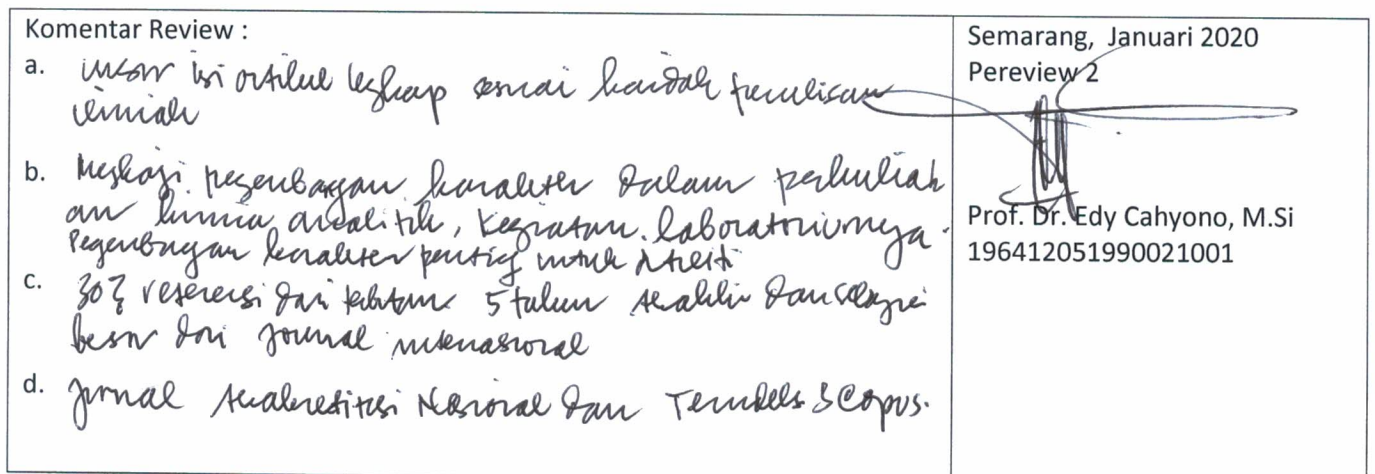 Komentar Review :
a. unsur isi artikel lengkap sesuai kaidah penulisan
ilmiah
b. Mengkaji pegembangan karakter dalam perkuliah
an kimia analitik, kegiatan laboratoriumnya.
Pegembagan karakter penting untuk diteliti
c. 30% referensi dari 5 tahun terakhir dan sebagian
besar dari journal internasional
d. Jurnal terakreditasi Nasional dan Terindeks Scopus.
Semarang, Januari 2020
Pereview 2
Prof. Dr. Edy Cahyono, M.Si
196412051990021001